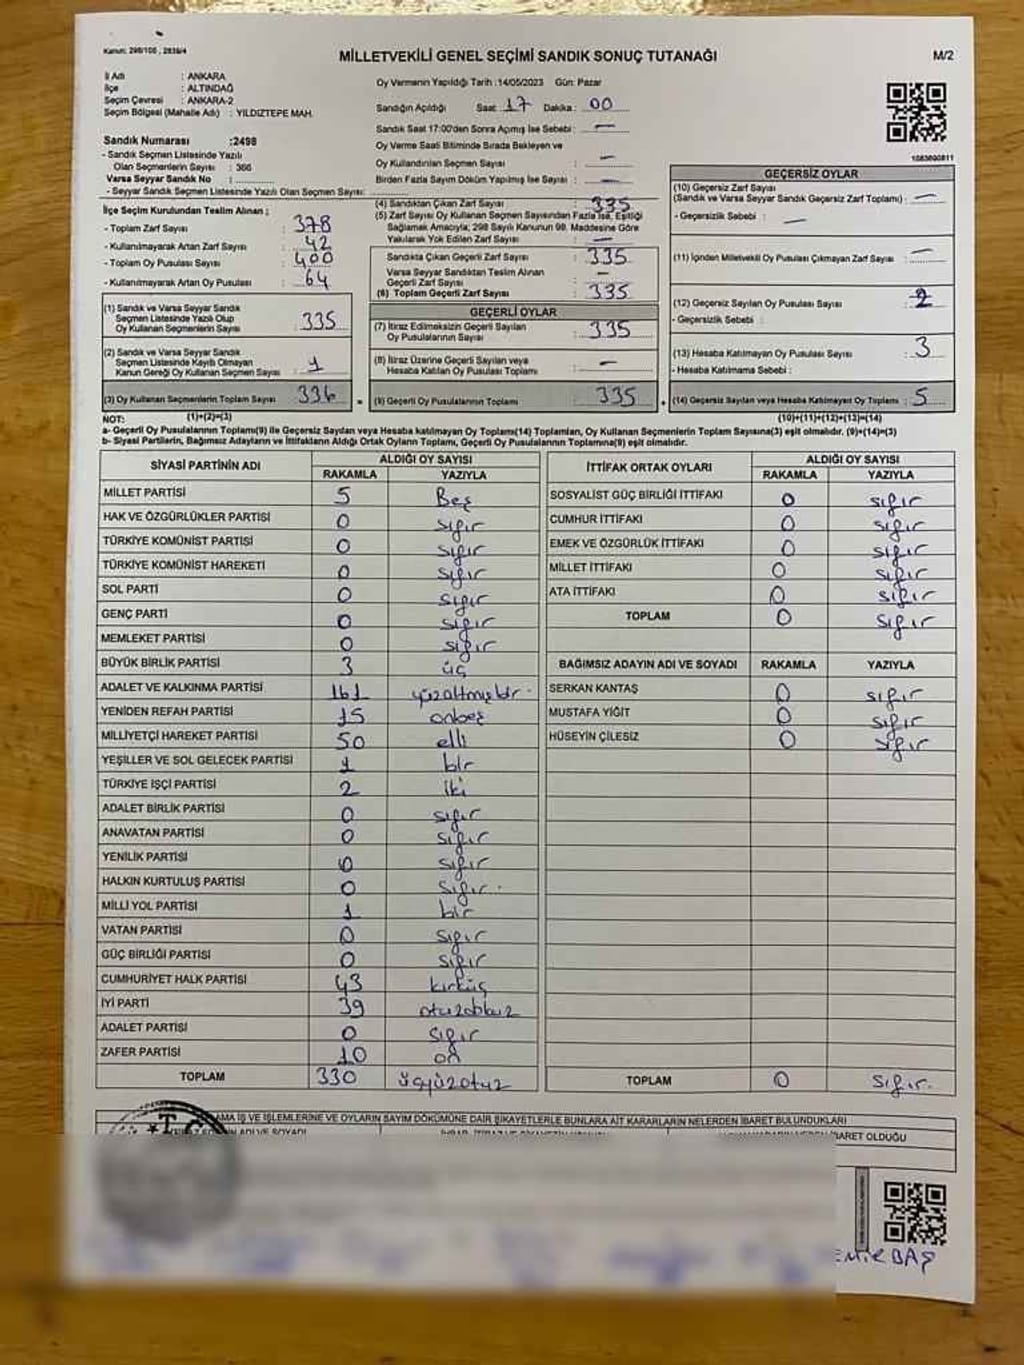 Kanun: 298/105 , 2839/4
MİLLETVEKİLİ GENEL SEÇİMİ SANDIK SONUÇ TUTANAĞI
M/2
İl Adı : ANKARA
İlçe : ALTINDAĞ
Seçim Çevresi : ANKARA-2
Seçim Bölgesi (Mahalle Adı) : YILDIZTEPE MAH.
Sandık Numarası :2498
- Sandık Seçmen Listesinde Yazılı
Olan Seçmenlerin Sayısı : 366
Varsa Seyyar Sandık No :
- Seyyar Sandık Seçmen Listesinde Yazılı Olan Seçmen Sayısı:
İlçe Seçim Kurulundan Teslim Alınan ;
- Toplam Zarf Sayısı : 378
- Kullanılmayarak Artan Zarf Sayısı : 42
- Toplam Oy Pusulası Sayısı : 400
- Kullanılmayarak Artan Oy Pusulası : 64
(1) Sandık ve Varsa Seyyar Sandık
Seçmen Listesinde Yazılı Olup
Oy Kullanan Seçmenlerin Sayısı : 335
(2) Sandık ve Varsa Seyyar Sandık
Seçmen Listesinde Kayıtlı Olmayan
Kanun Gereği Oy Kullanan Seçmen Sayısı : 1
(3) Oy Kullanan Seçmenlerin Toplam Sayısı : 336
(1)+(2)=(3)
Oy Vermenin Yapıldığı Tarih :14/05/2023 Gün: Pazar
Sandığın Açıldığı Saat: 17 Dakika : 00
Sandık Saat 17:00'den Sonra Açımış İse Sebebi : —
Oy Verme Saati Bitiminde Sırada Bekleyen ve
Oy Kullandırılan Seçmen Sayısı : —
Birden Fazla Sayım Döküm Yapılmış İse Sayısı : —
(4) Sandıktan Çıkan Zarf Sayısı : 335
(5) Zarf Sayısı Oy Kullanan Seçmen Sayısından Fazla İse, Eşitliği
Sağlamak Amacıyla; 298 Sayılı Kanunun 98. Maddesine Göre
Yakılarak Yok Edilen Zarf Sayısı : —
Sandıkta Çıkan Geçerli Zarf Sayısı : 335
Varsa Seyyar Sandıktan Teslim Alınan
Geçerli Zarf Sayısı : —
(6) Toplam Geçerli Zarf Sayısı : 335
GEÇERLİ OYLAR
(7) İtiraz Edilmeksizin Geçerli Sayılan
Oy Pusulalarının Sayısı : 335
(8) İtiraz Üzerine Geçerli Sayılan veya
Hesaba Katılan Oy Pusulası Toplamı : —
(9) Geçerli Oy Pusulalarının Toplamı : 335
1083600811
GEÇERSİZ OYLAR
(10) Geçersiz Zarf Sayısı
(Sandık ve Varsa Seyyar Sandık Geçersiz Zarf Toplamı) : —
- Geçersizlik Sebebi : —
(11) İçinden Milletvekili Oy Pusulası Çıkmayan Zarf Sayısı : —
(12) Geçersiz Sayılan Oy Pusulası Sayısı : 2
- Geçersizlik Sebebi :
(13) Hesaba Katılmayan Oy Pusulası Sayısı : 3
- Hesaba Katılmama Sebebi :
(14) Geçersiz Sayılan veya Hesaba Katılmayan Oy Toplamı : 5
(10)+(11)+(12)+(13)=(14)
NOT:
a- Geçerli Oy Pusulasının Toplamı(9) ile Geçersiz Sayılan veya Hesaba katılmayan Oy Pusulası Toplamı(14) Toplamları, Oy Kullanan Seçmenlerin Toplam Sayısına(3) eşit olmalıdır. (9)+(14)=(3)
b- Siyasi Partilerin, Bağımsız Adayların ve İttifakların Aldığı Ortak Oyların Toplamı, Geçerli Oy Pusulalarının Toplamına(9) eşit olmalıdır.
SİYASİ PARTİNİN ADI ALDIĞI OY SAYISI
RAKAMLA YAZIYLA
MİLLET PARTİSİ 5 Beş
HAK VE ÖZGÜRLÜKLER PARTİSİ 0 sıfır
TÜRKİYE KOMÜNİST PARTİSİ 0 sıfır
TÜRKİYE KOMÜNİST HAREKETİ 0 sıfır
SOL PARTİ 0 sıfır
GENÇ PARTİ 0 sıfır
MEMLEKET PARTİSİ 0 sıfır
BÜYÜK BİRLİK PARTİSİ 3 üç
ADALET VE KALKINMA PARTİSİ 161 yüzaltmışbir
YENİDEN REFAH PARTİSİ 15 onbeş
MİLLİYETÇİ HAREKET PARTİSİ 50 elli
YEŞİLLER VE SOL GELECEK PARTİSİ 1 bir
TÜRKİYE İŞÇİ PARTİSİ 2 iki
ADALET BİRLİK PARTİSİ 0 sıfır
ANAVATAN PARTİSİ 0 sıfır
YENİLİK PARTİSİ 0 sıfır
HALKIN KURTULUŞ PARTİSİ 0 sıfır
MİLLİ YOL PARTİSİ 1 bir
VATAN PARTİSİ 0 sıfır
GÜÇ BİRLİĞİ PARTİSİ 0 sıfır
CUMHURİYET HALK PARTİSİ 43 kırküç
İYİ PARTİ 39 otuzdokuz
ADALET PARTİSİ 0 sıfır
ZAFER PARTİSİ 10 on
TOPLAM 330 üçyüzotuz
İTTİFAK ORTAK OYLARI ALDIĞI OY SAYISI
RAKAMLA YAZIYLA
SOSYALİST GÜÇ BİRLİĞİ İTTİFAKI 0 sıfır
CUMHUR İTTİFAKI 0 sıfır
EMEK VE ÖZGÜRLÜK İTTİFAKI 0 sıfır
MİLLET İTTİFAKI 0 sıfır
ATA İTTİFAKI 0 sıfır
TOPLAM 0 sıfır
BAĞIMSIZ ADAYIN ADI VE SOYADI RAKAMLA YAZIYLA
SERKAN KANTAŞ 0 sıfır
MUSTAFA YİĞİT 0 sıfır
HÜSEYİN ÇİLESİZ 0 sıfır
TOPLAM 0 sıfır
AMA İŞ VE İŞLEMLERİNE VE OYLARIN SAYIM DÖKÜMÜNE DAİR ŞİKAYETLERLE BUNLARA AİT KARARLARIN NELERDEN İBARET BULUNDUKLARI
T.C.
N ADI VE SOYADI
BARET OLDUĞU
EMİR BAŞ